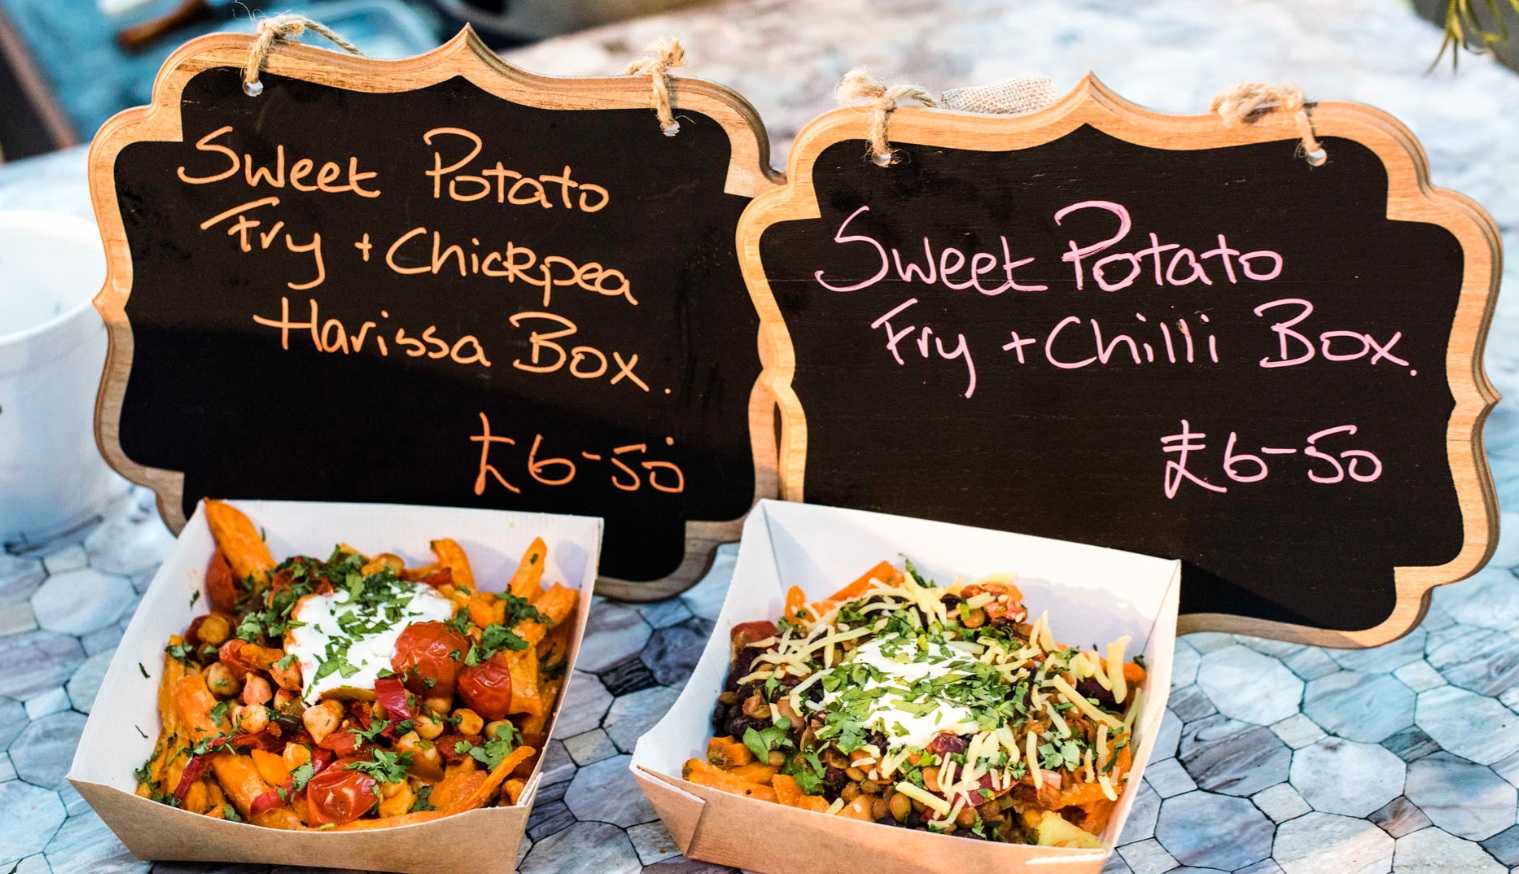 Sweet Potato
Fry + Chickpea
Harissa Box.
£6-50
Sweet Potato
Fry + Chilli Box.
£6-50